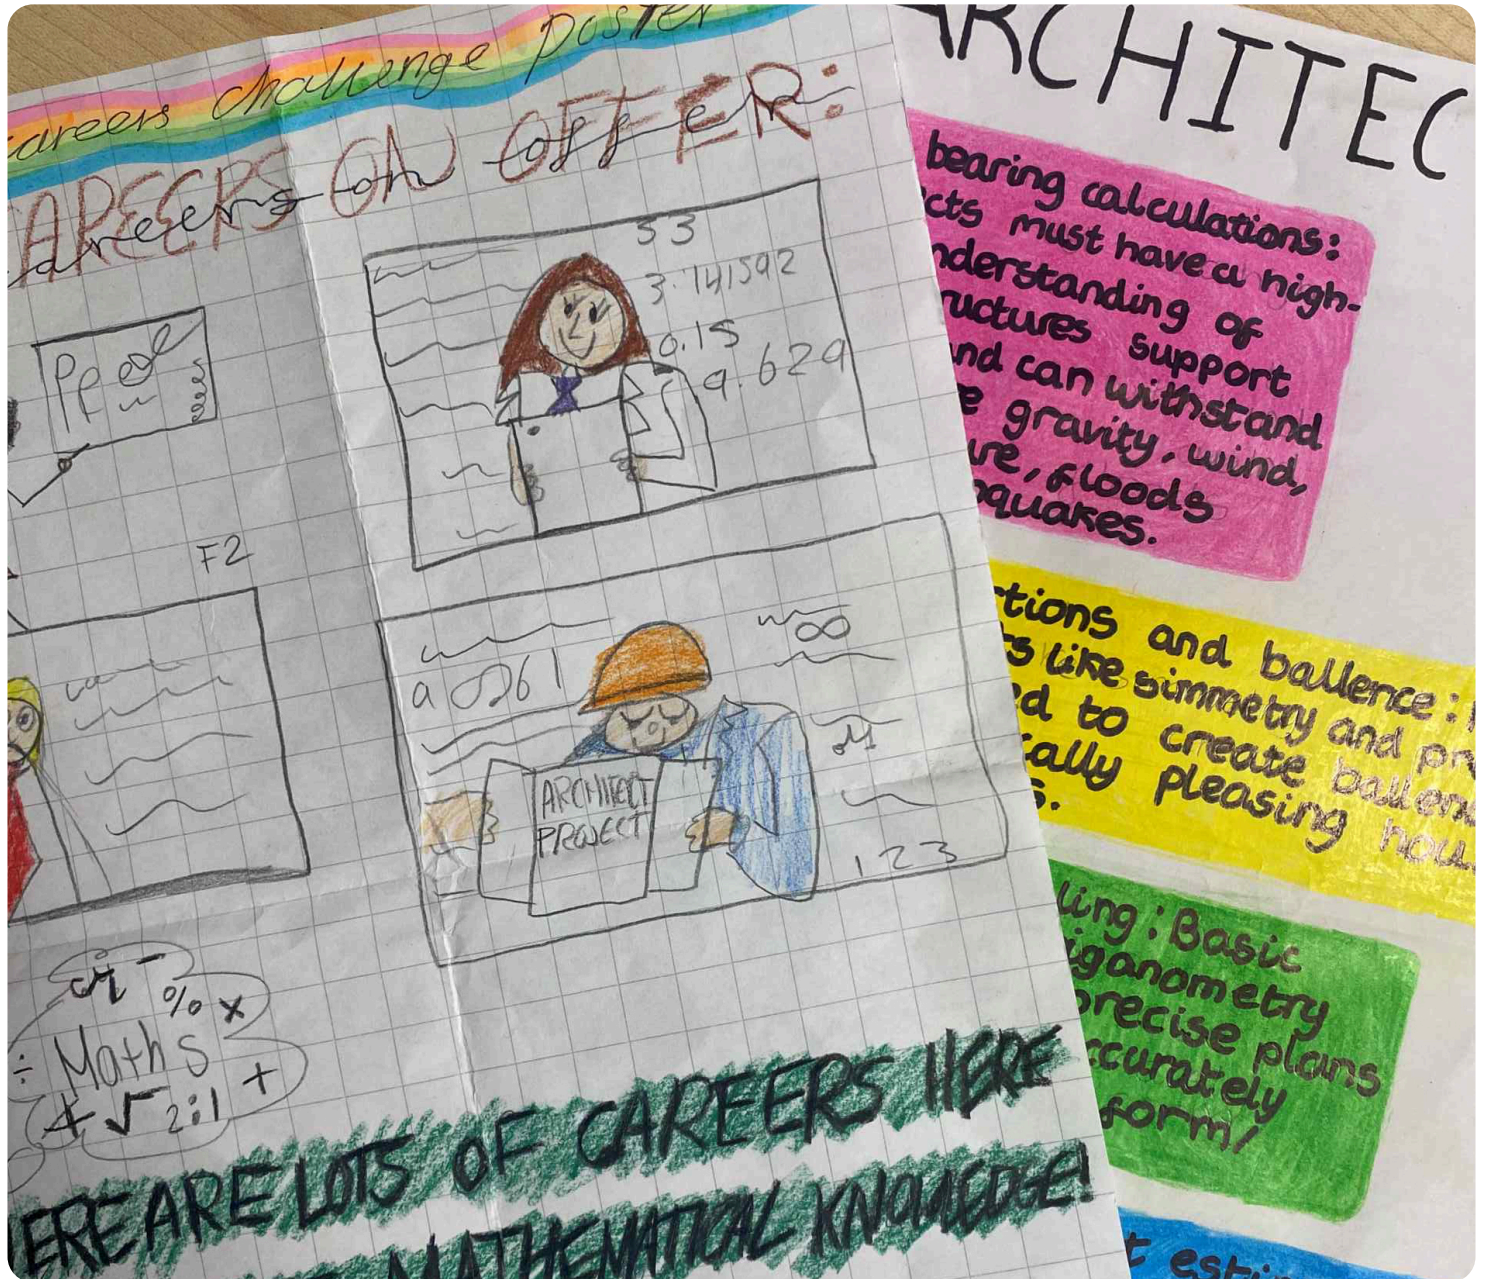 careers challenge poster
CAREERS ON OFFER:
careers on offer
53
3.141592
0.15
9.629
F2
∞
ARCHITECT
PROJECT
123
- % x
÷ Maths
√ 2:1 +
HERE ARE LOTS OF CAREERS HERE
MATHEMATICAL KNOWLEDGE!
ARCHITEC
bearing calculations:
cts must have a high-
nderstanding of
ructures support
and can withstand
e gravity, wind,
ure, floods
hquakes.
rtions and ballence:
ts like simmetry and pr
ed to create ballen
ically pleasing hou
s.
ling: Basic
iganometry
precise plans
ccurately
form/
t esti